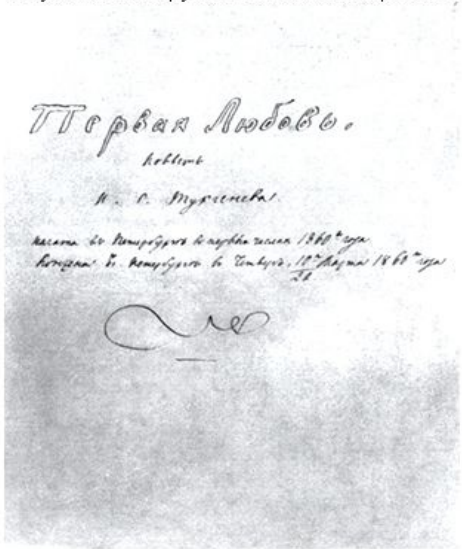 Первая Любовь.
Повесть
И. С. Тургенева.
начата въ Петербургѣ въ первыхъ числахъ 1860го года
Кончена въ Петербургѣ въ Четвергъ, 10го/22 Марта 1860го года